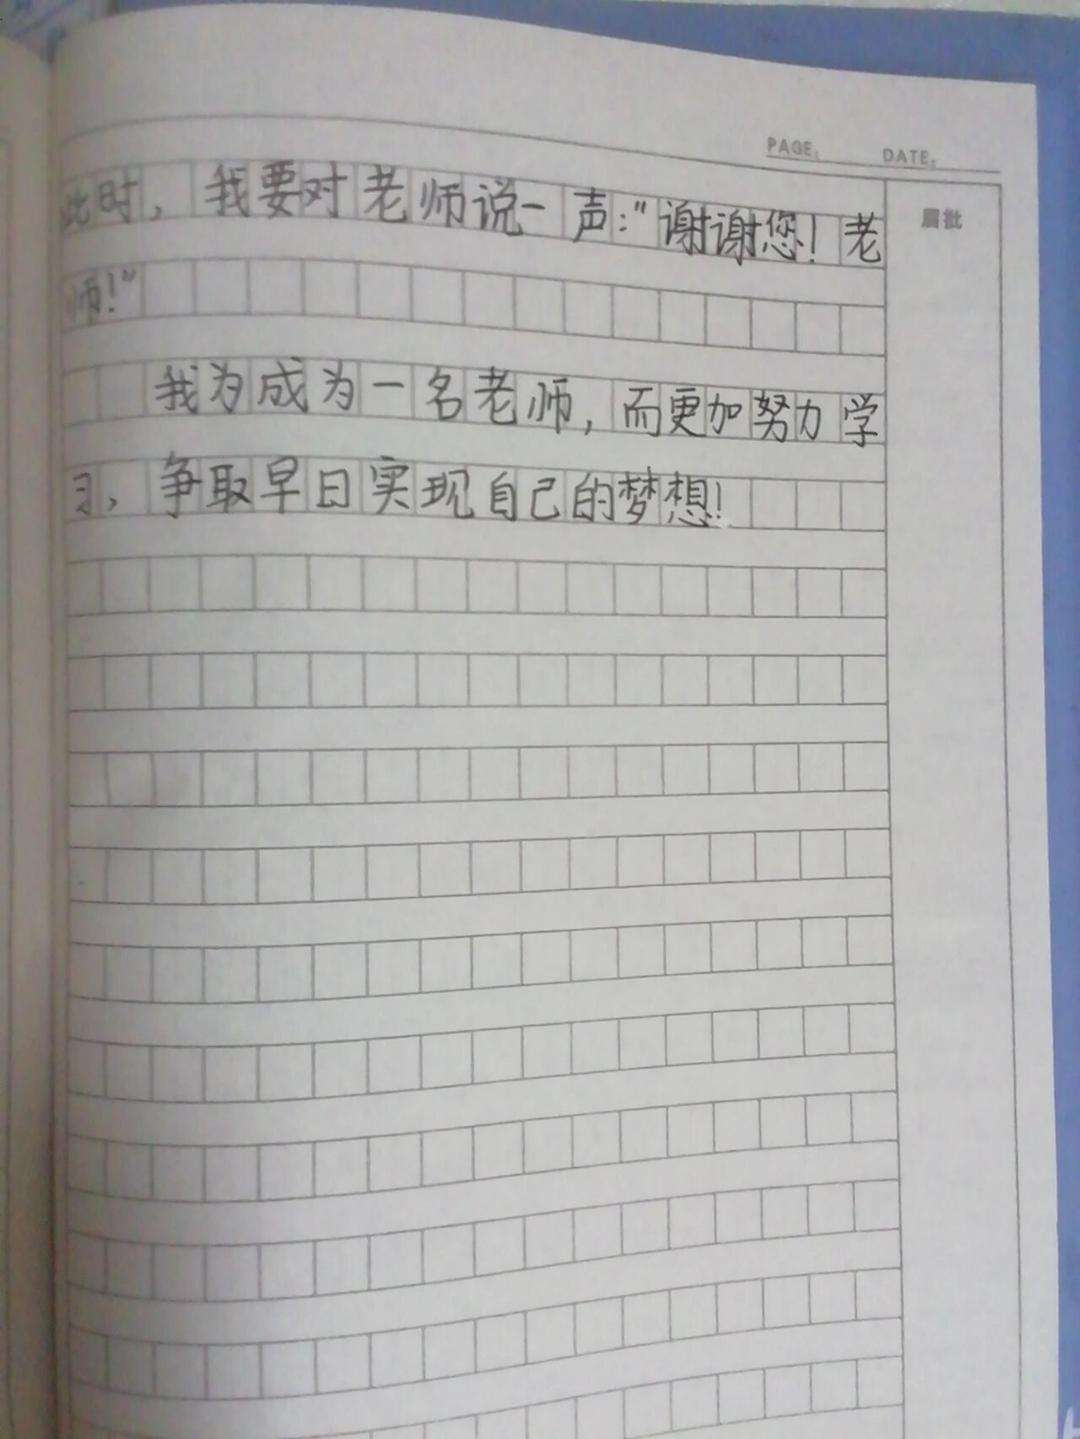 PAGE: DATE:
眉批
此时，我要对老师说一声："谢谢您！老
师！"
我为成为一名老师，而更加努力学
习，争取早日实现自己的梦想！